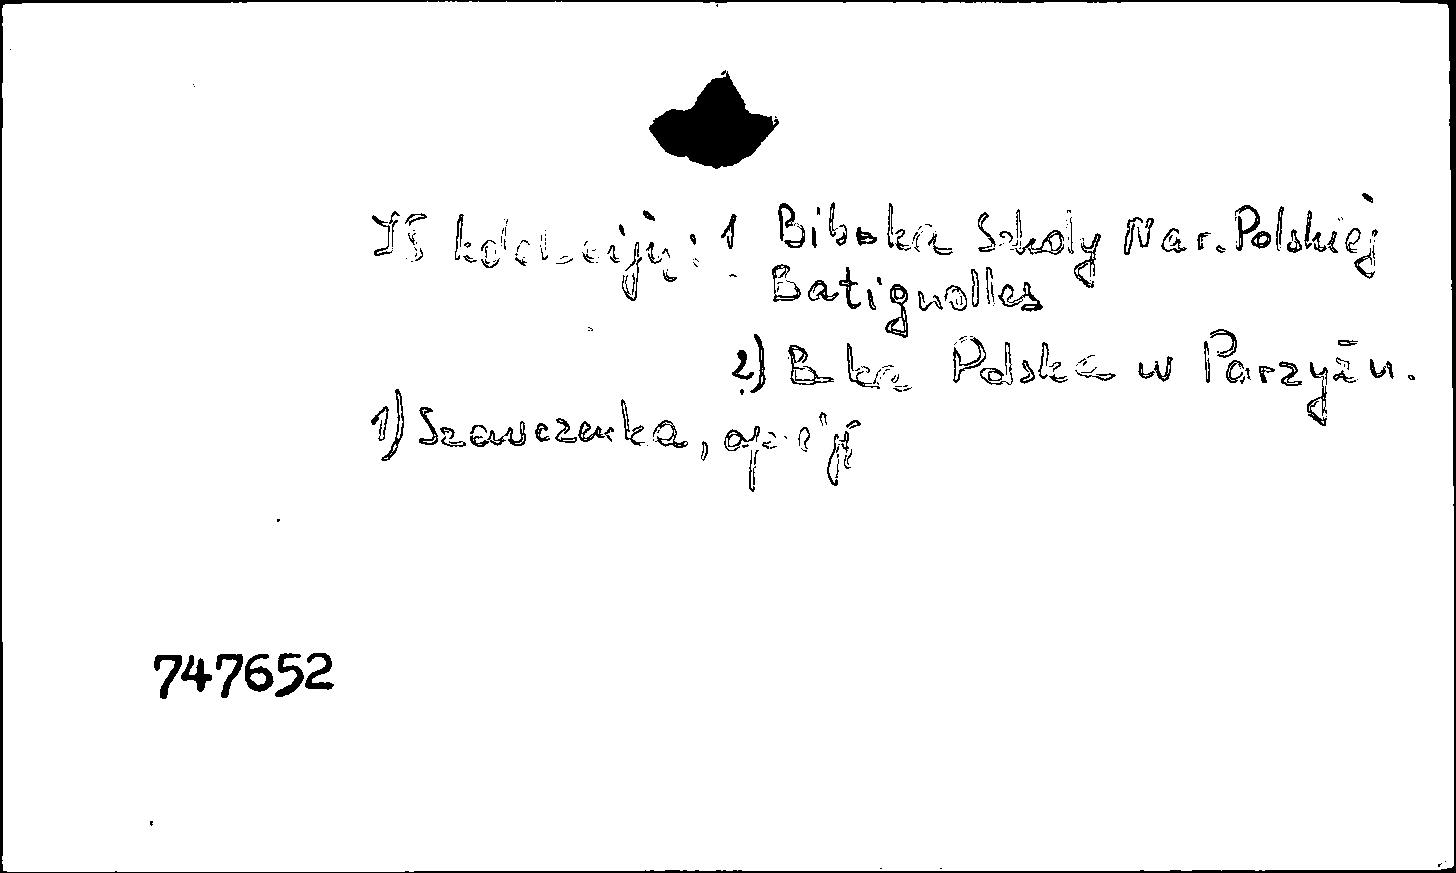 Iš kolekcijų: 1. Biboka Szkoly Nar. Polskiej
Batignolles
2) B-ka Polska w Parzyżu.
1) Szawczenka, apie jį
747652